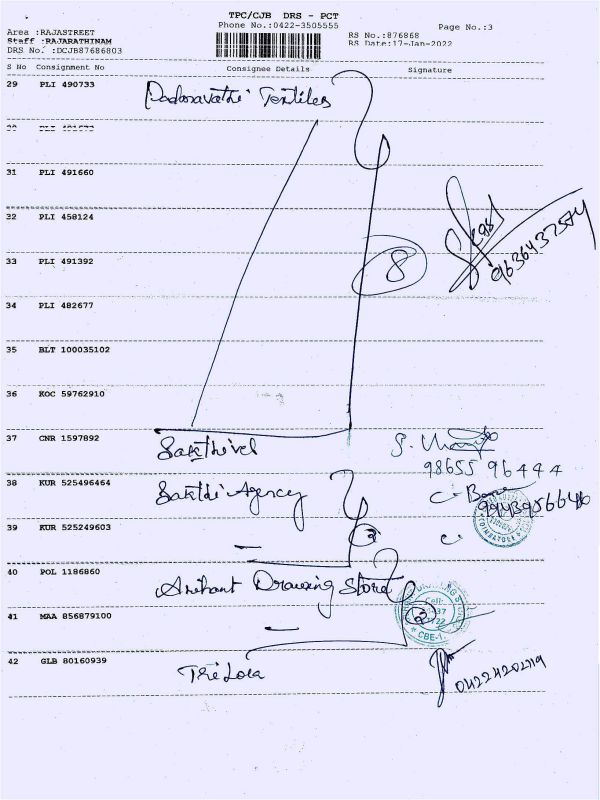 TPC/CJB DRS - PCT
Phone No.:0422-3505555
Page No.:3
Area :RAJASTREET
Staff :RAJARATHINAM
DRS No. :DCJB87686803
RS No.:876868
RS Date:17-Jan-2022
S No Consignment No Consignee Details Signature
29 PLI 490733
Textiles
31 PLI 491660
32 PLI 458124
33 PLI 491392
8
34 PLI 482677
35 BLT 100035102
36 KOC 59762910
37 CNR 1597892 Sakthivel
98655 96444
38 KUR 525496464 Sakthi Agency
39 KUR 525249603
40 POL 1186860 Arihant Drawing Store
41 MAA 856879100
Cell:
CBE-1.
42 GLB 80160939